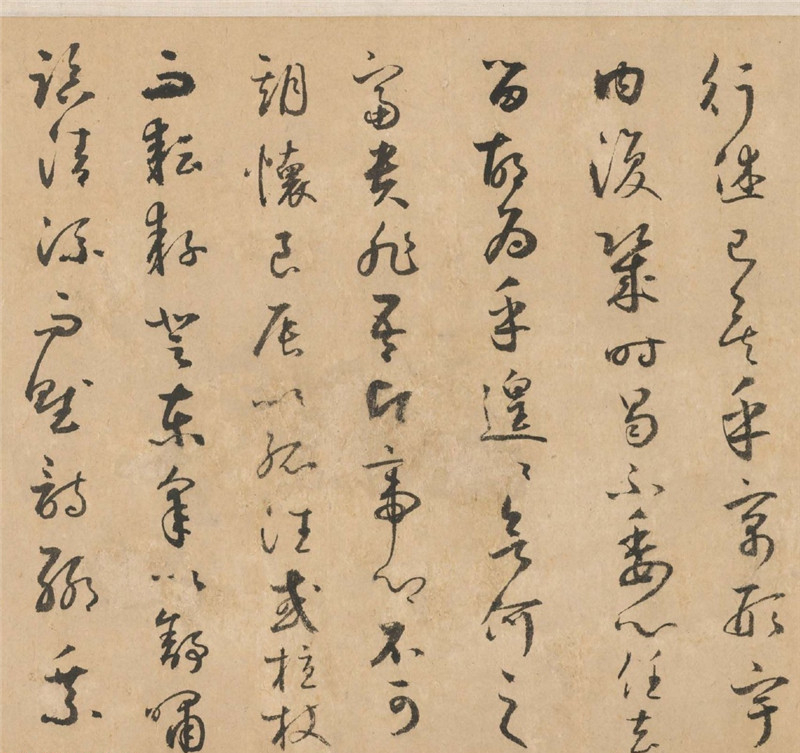 行休已矣乎寓形宇
內復幾時曷不委心任去
留胡為乎遑〻欲何之
富貴非吾願帝鄉不可
期懷良辰以孤往或植杖
而耘耔登東皋以舒嘯
臨清流而賦詩聊乘